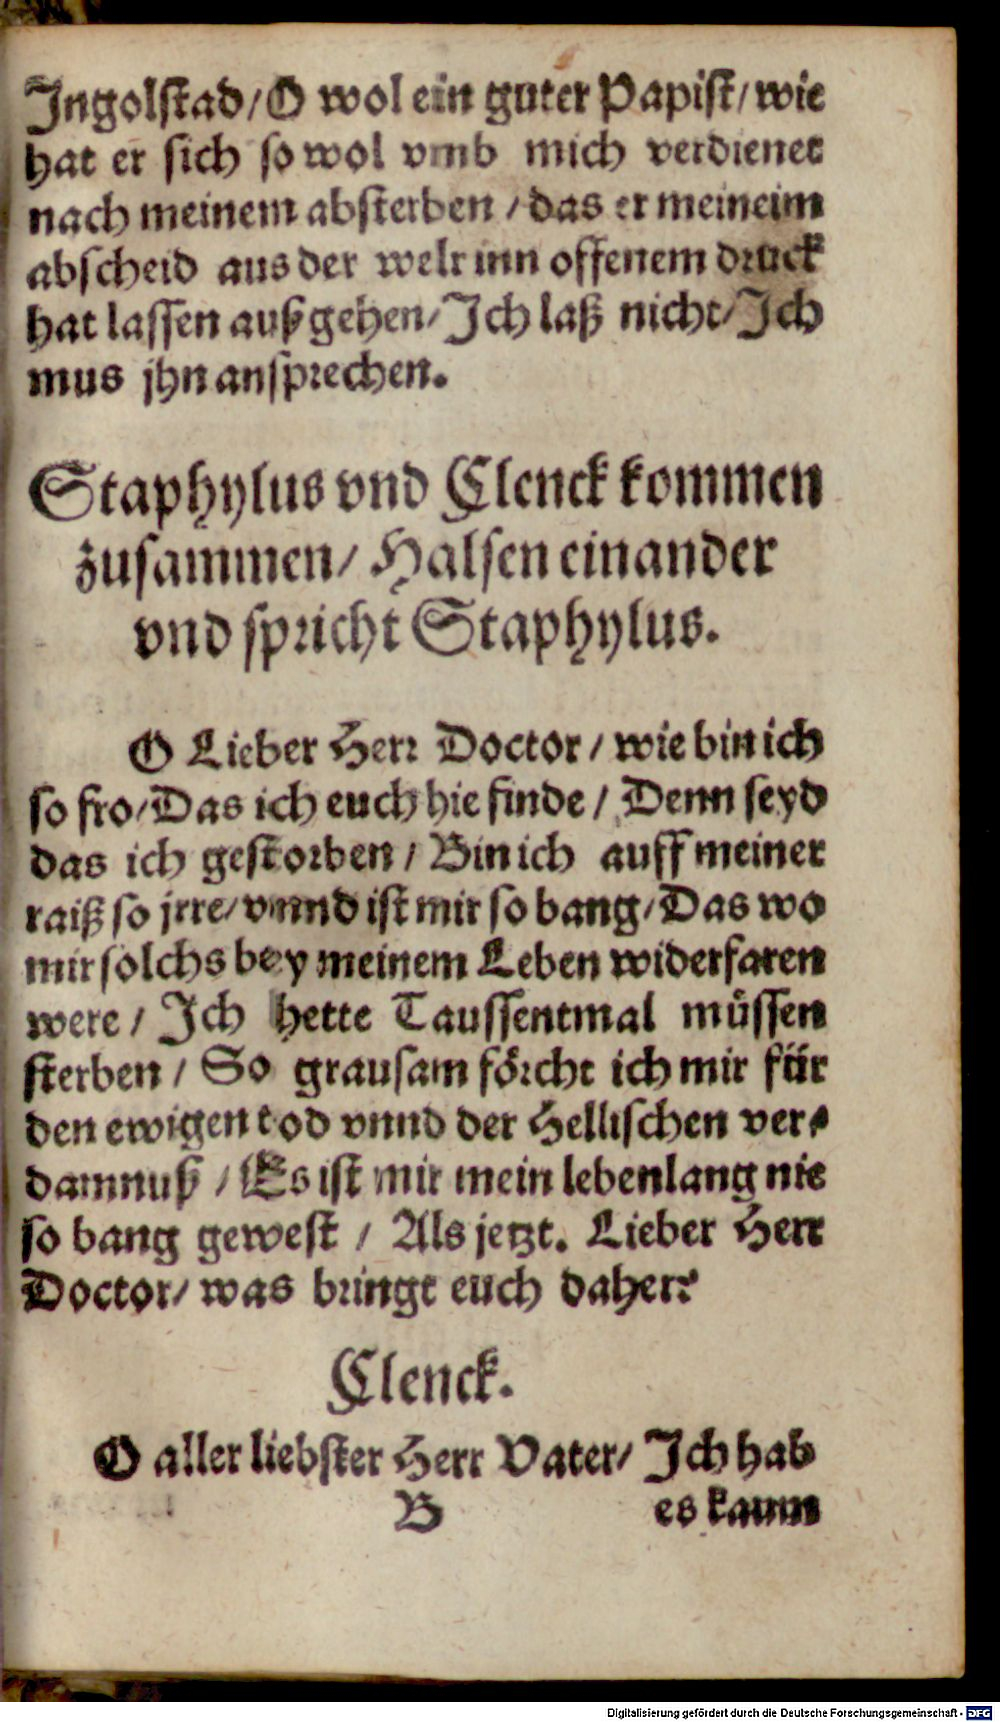 Jngolstad/ O wol ein guter Papist/ wie
hat er sich so wol vmb mich verdienet
nach meinem absterben / das er meineim
abscheid aus der welt inn offenem druck
hat lassen außgehen/ Jch laß nicht/ Jch
mus jhn ansprechen.
Staphylus vnd Clenck kommen
zusammen/ Halsen einander
vnd spricht Staphylus.
O Lieber Herr Doctor / wie bin ich
so fro/ Das ich euch hie finde / Denn seyd
das ich gestorben / Bin ich auff meiner
raiß so jrre/ vnnd ist mir so bang/ Das wo
mir solchs bey meinem Leben widerfaren
were / Jch hette Taussentmal müssen
sterben / So grausam förcht ich mir für
den ewigen tod vnnd der Hellischen ver-
damnuß / Es ist mir mein lebenlang nie
so bang gewest / Als jetzt. Lieber Herr
Doctor/ was bringt euch daher?
Clenck.
O aller liebster Herr Vater/ Jch hab
B es kaum
Digitalisierung gefördert durch die Deutsche Forschungsgemeinschaft - DFG